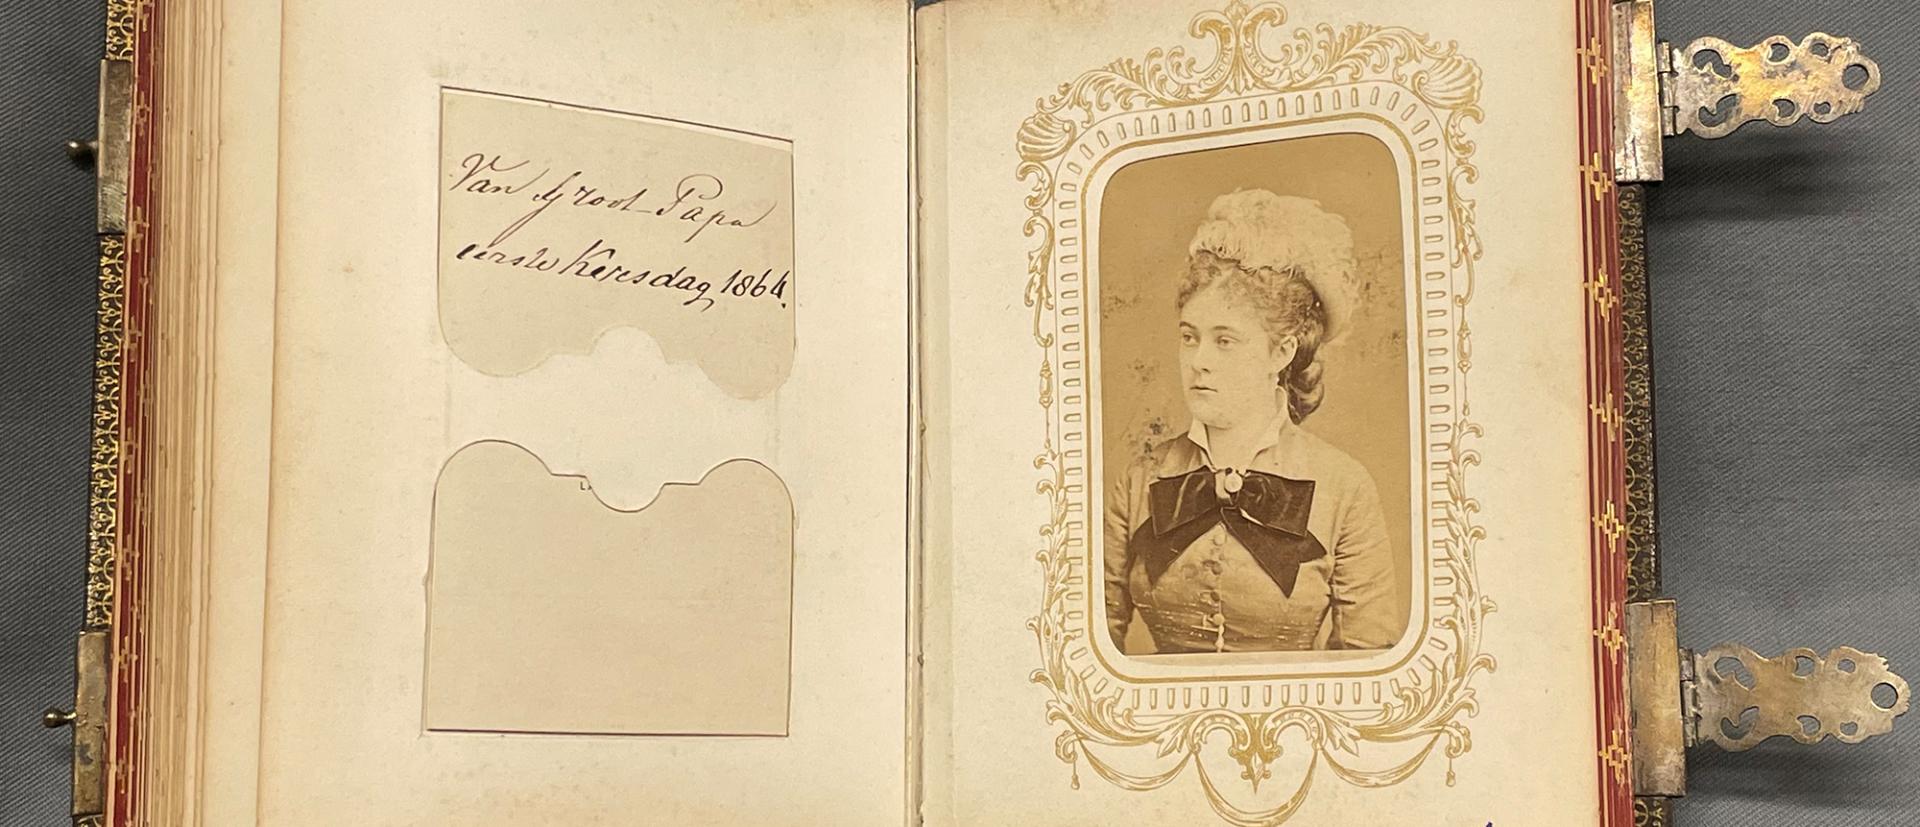 Van Groot-Papa
eerste Kersdag 1864.